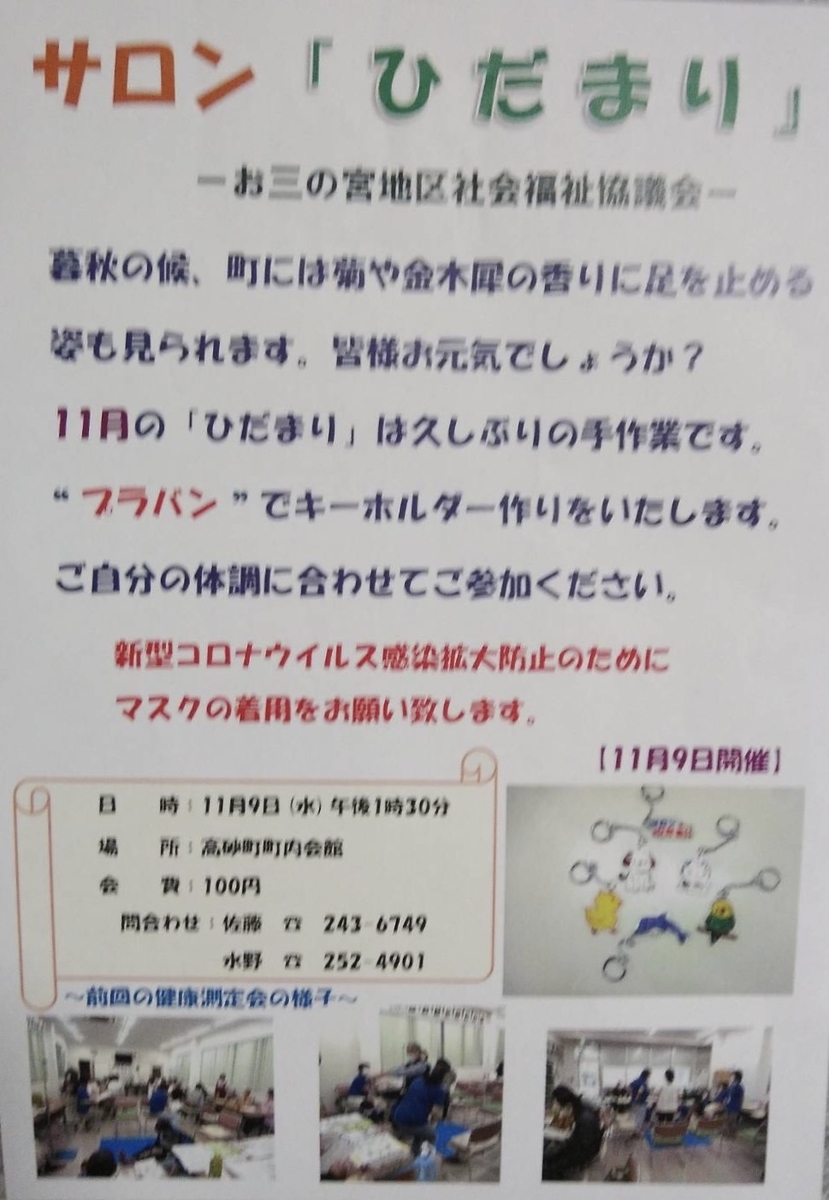 サロン「ひだまり」
－お三の宮地区社会福祉協議会－
暮秋の候、町には菊や金木犀の香りに足を止める
姿も見られます。皆様お元気でしょうか？
11月の「ひだまり」は久しぶりの手作業です。
“プラバン”でキーホルダー作りをいたします。
ご自分の体調に合わせてご参加ください。
新型コロナウイルス感染拡大防止のために
マスクの着用をお願い致します。
【11月9日開催】
日　　時：11月9日（水）午後1時30分
場　　所：高砂町町内会館
会　　費：100円
問合わせ：佐藤　☎　243-6749
水野　☎　252-4901
～前回の健康測定会の様子～